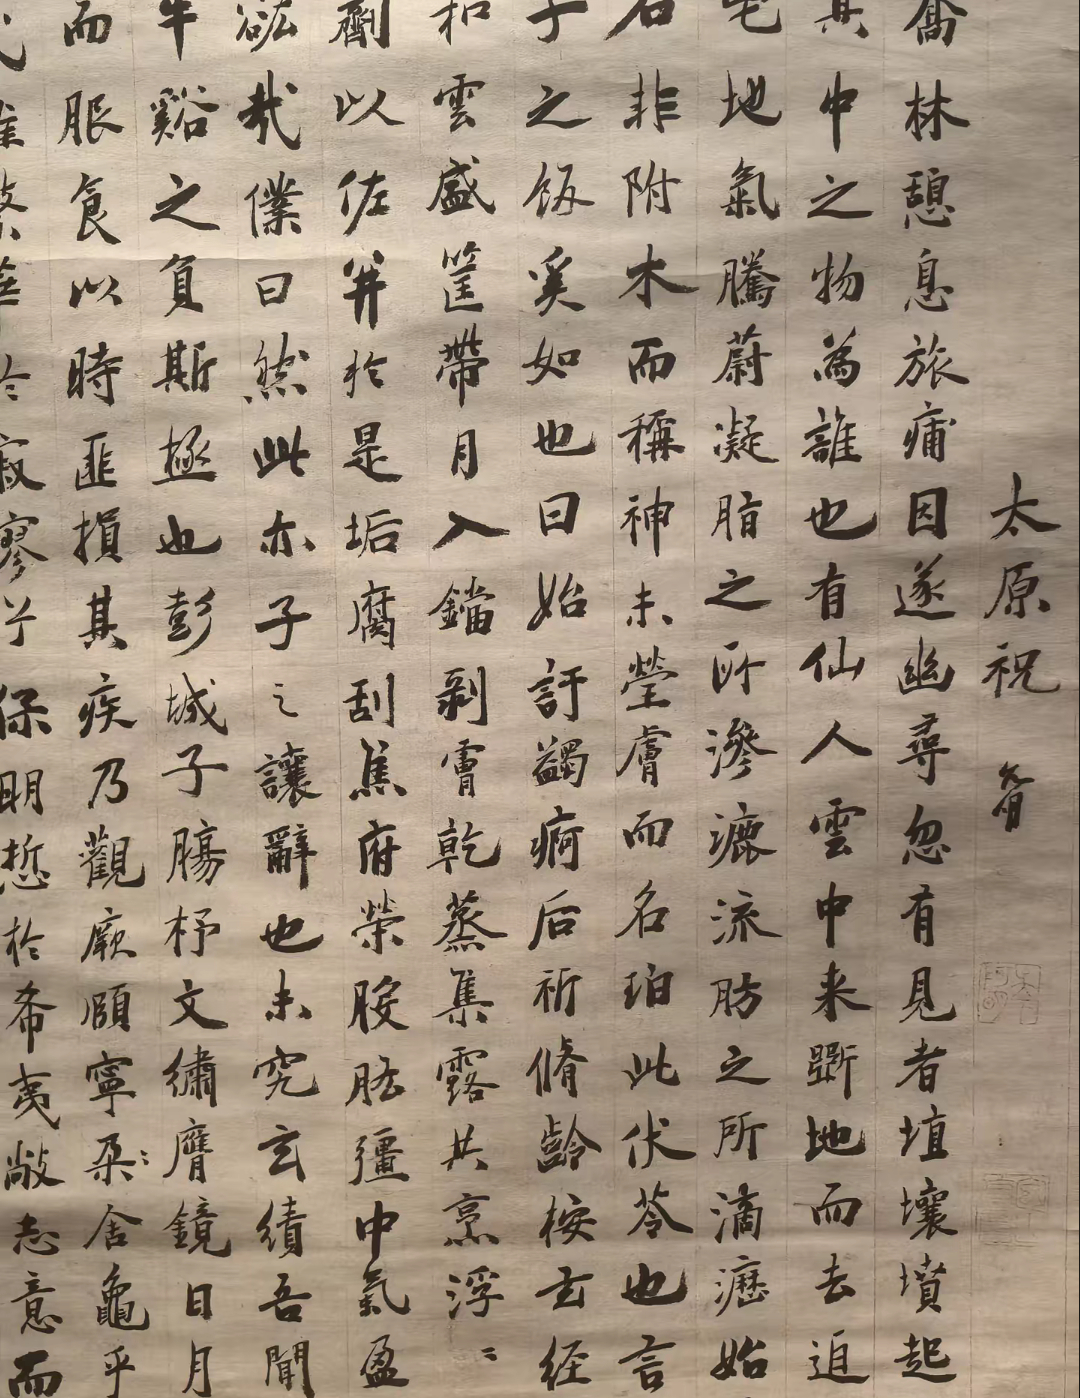 太原祝
喬林憩息旅痡因遂幽尋忽有見者埴壤墳起
其中之物為誰也有仙人雲中来斸地而去迫
宅地氣騰蔚凝脂之所滲漉流肪之所滴瀝始
石非附木而稱神未瑩膚而名珀此伏苓也言
子之飯溪如也曰始訝蠲痾后祈脩齡桉玄經
和雲盛筐帶月入鐺剥膚乾蒸集露共烹浮〻
劑以佐并於是垢腐刮焦府榮胺肱彊中氣盈
哉僕曰然此亦子之讓辭也未究玄績吾聞
牛谿之負斯極也彭城子腸杼文繡膺鏡日月
而服食以時匪損其疾乃觀厥頤寧朶〻舍龜乎
寂寥兮保明悊於希夷敞志意而